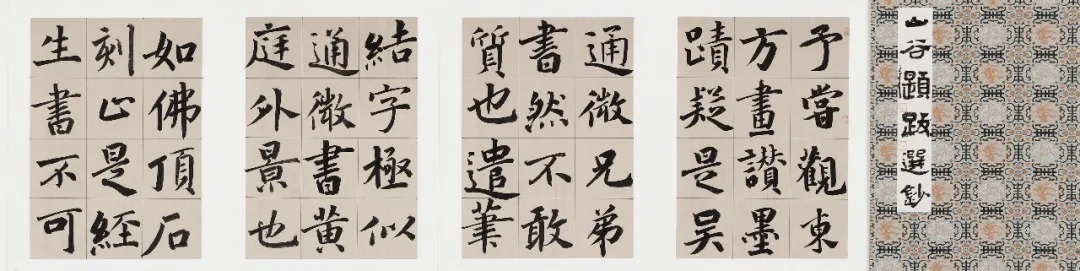 山谷題跋選鈔
予嘗觀東
方畫讚墨
蹟疑是吳
通微兄弟
書然不敢
質也遣筆
結字極似
通微書黃
庭外景也
如佛頂石
刻止是經
生書不可